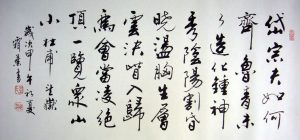 岱宗夫如何
齊魯青未
了造化鍾神
秀陰陽割昏
曉盪胸生層
雲決眥入歸
鳥會當凌絕
頂一覽眾山
小 杜甫望嶽
歲次甲午初夏
書